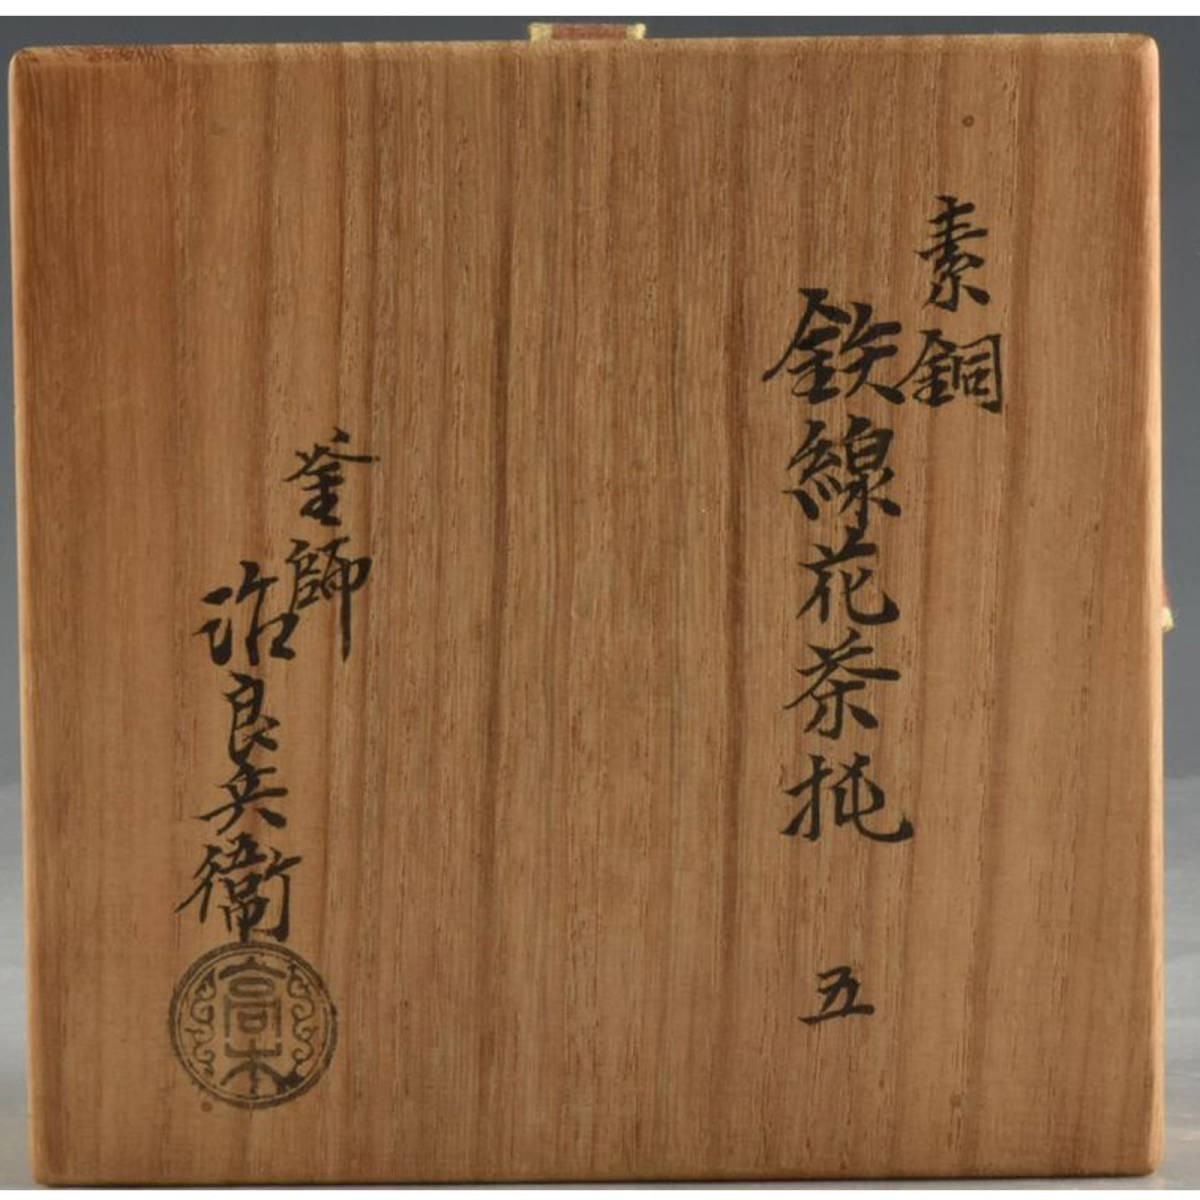 素銅
鉄線花茶托 五
釜師
治良兵衛
高木